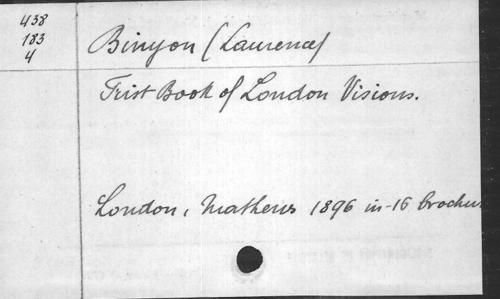 438
183
4
Binyon (Laurence)
Frist Book of London Visions.
London, Mathews 1896 in-16 broch